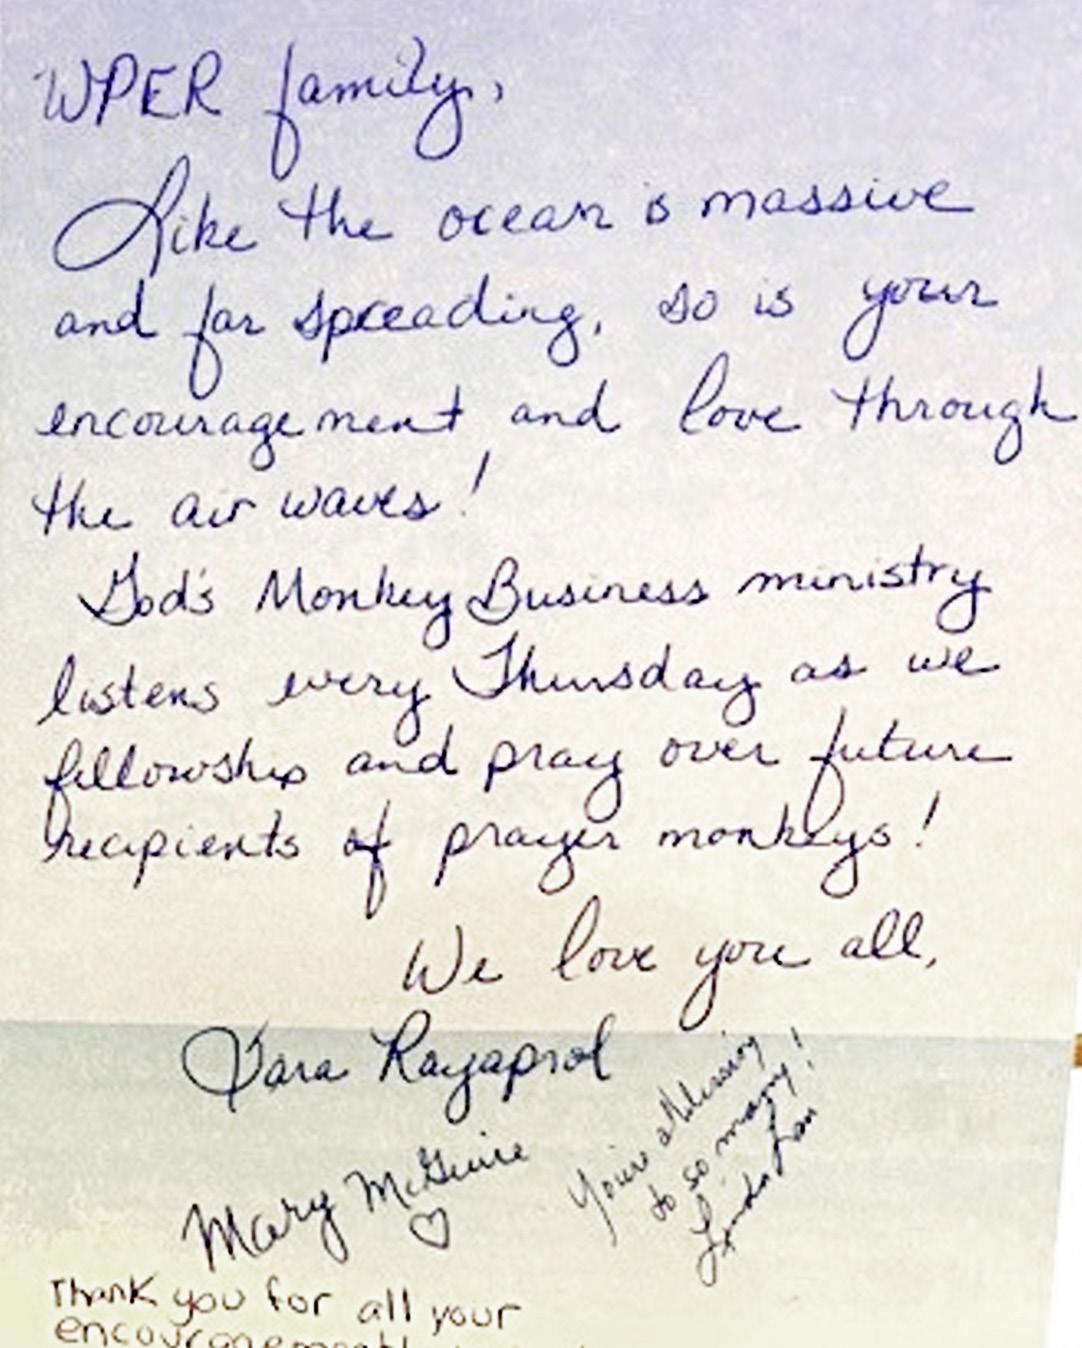 WPER family,
Like the ocean is massive
and far spreading, so is your
encouragement and love through
the air waves!
God's Monkey Business ministry
listens every Thursday as we
fellowship and pray over future
recipients of prayer monkeys!
We love you all,
Tara Rayaprol
Mary McGuire
♡
You're a blessing
to so many!
Linda
Thank you for all your
encouragement!